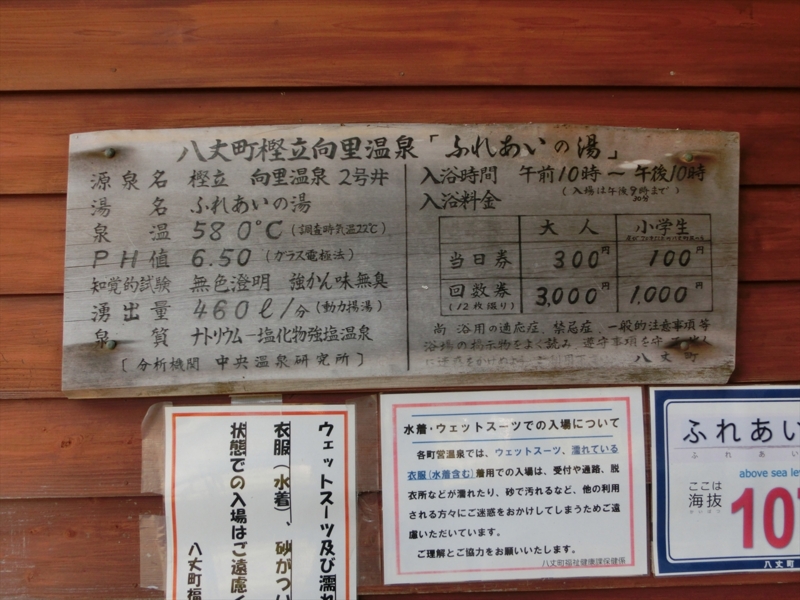 八丈町樫立向里温泉「ふれあいの湯」
源泉名 樫立 向里温泉 2号井
湯名 ふれあいの湯
泉温 58.0°C (調査時気温22℃)
PH値 6.50 (ガラス電極法)
知覚的試験 無色澄明 強かん味無臭
湧出量 460ℓ/分 (動力揚湯)
泉質 ナトリウム-塩化物強塩温泉
[分析機関 中央温泉研究所]
入浴時間 午前10時〜午後10時
(入場は午後9時30分まで)
入浴料金
大人 小学生
当日券 300円 100円
回数券 3,000円 1,000円
(12枚綴り)
尚 浴用の適応症、禁忌症、一般的注意事項等
浴場の掲示物をよく読み、遵守事項を守
八丈町
ウェットスーツ及び濡れ
衣服(水着)、砂がつい
状態での入場はご遠慮く
八丈町福
水着・ウェットスーツでの入場について
各町営温泉では、ウェットスーツ、濡れている
衣服(水着含む)着用での入場は、受付や通路、脱
衣所などが濡れたり、砂で汚れるなど、他の利用
される方々にご迷惑をおかけしてしまうためご遠
慮いただいています。
ご理解とご協力をお願いいたします。
八丈町福祉健康課保健係
ふれあい
ふ れ あ い
above sea le
ここは
海抜
かいばつ
107
八丈町